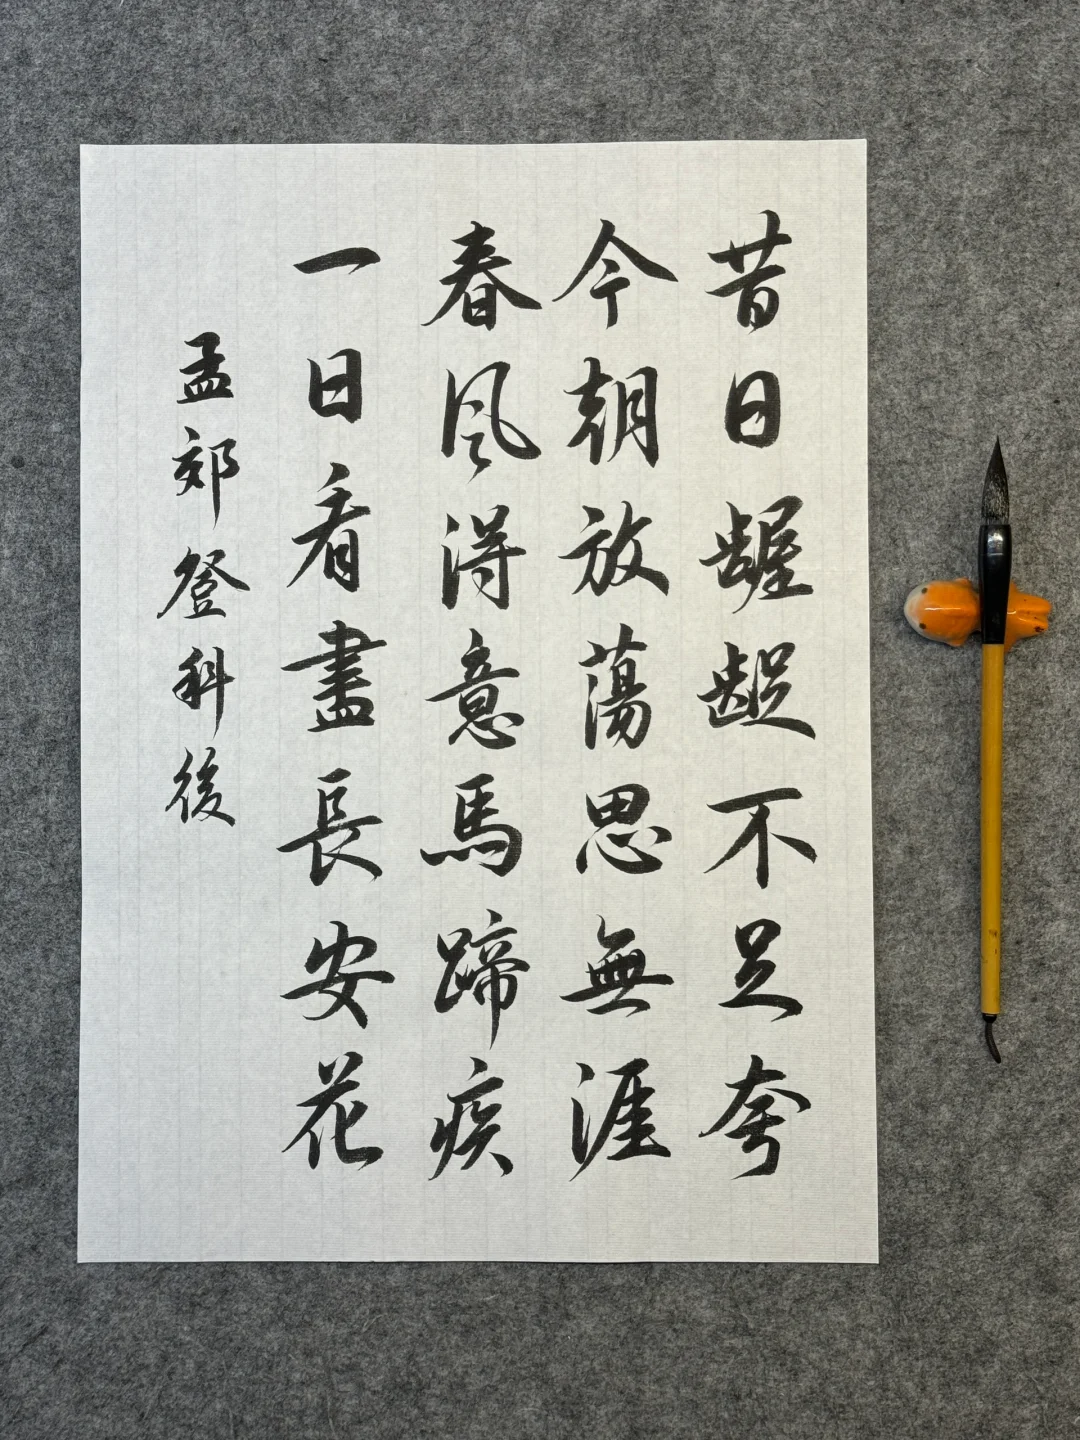 昔日齷齪不足夸
今朝放蕩思無涯
春风得意馬蹄疾
一日看盡長安花
孟郊登科後